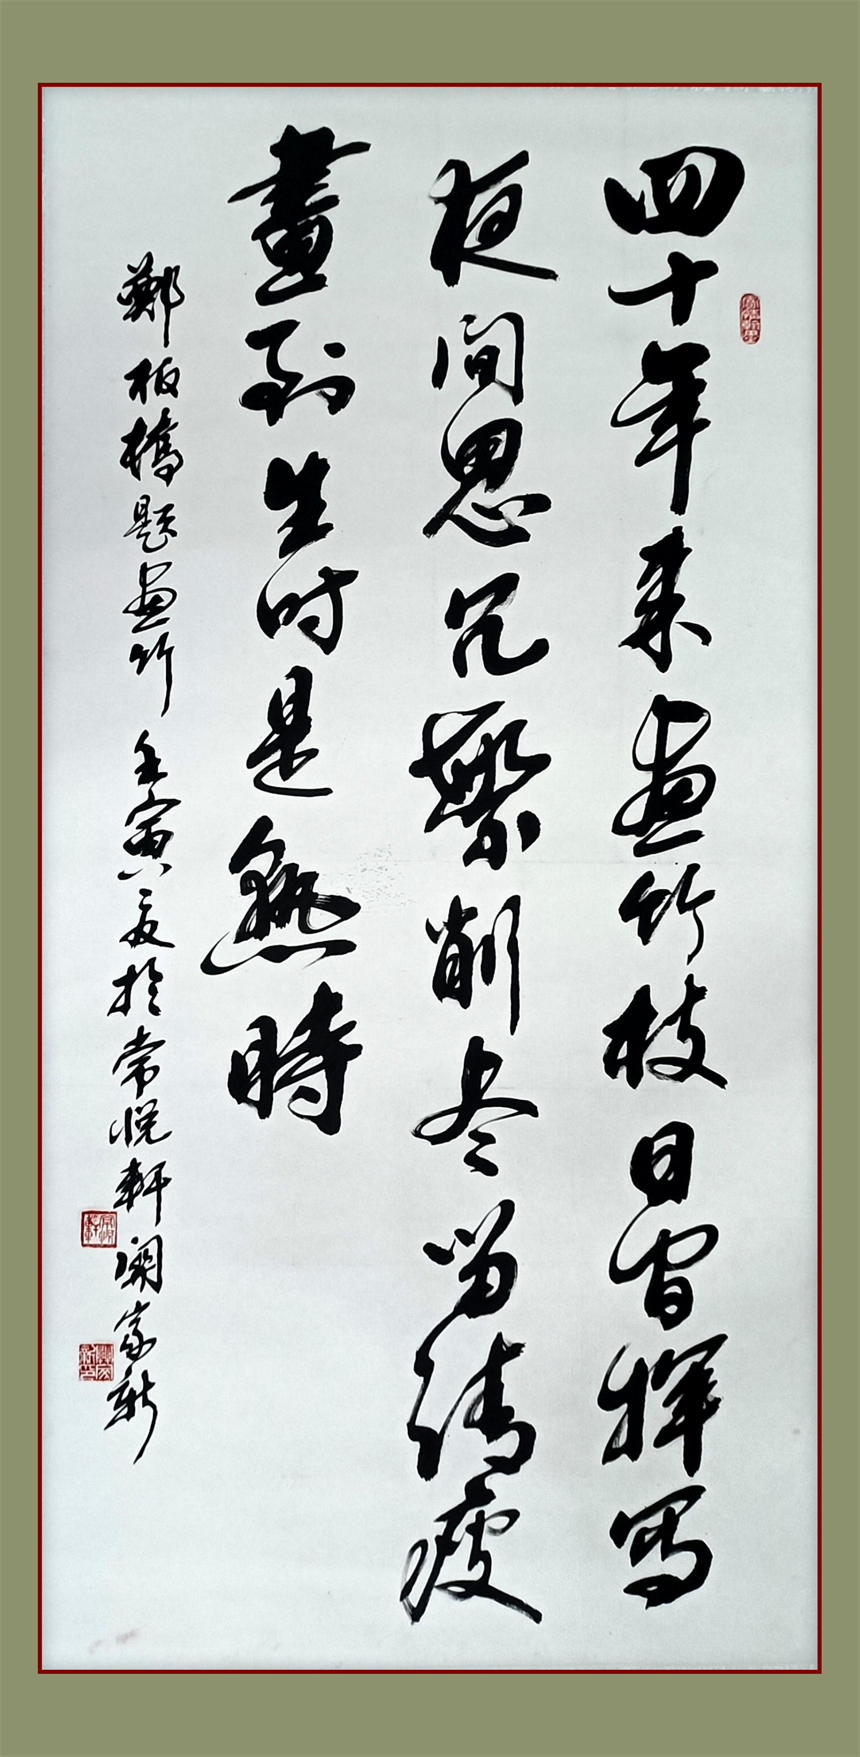 四十年来画竹枝日间挥写
夜间思冗繁削尽留清瘦
畫到生时是熟時
鄭板橋題画竹壬寅夏於常悦軒関家新